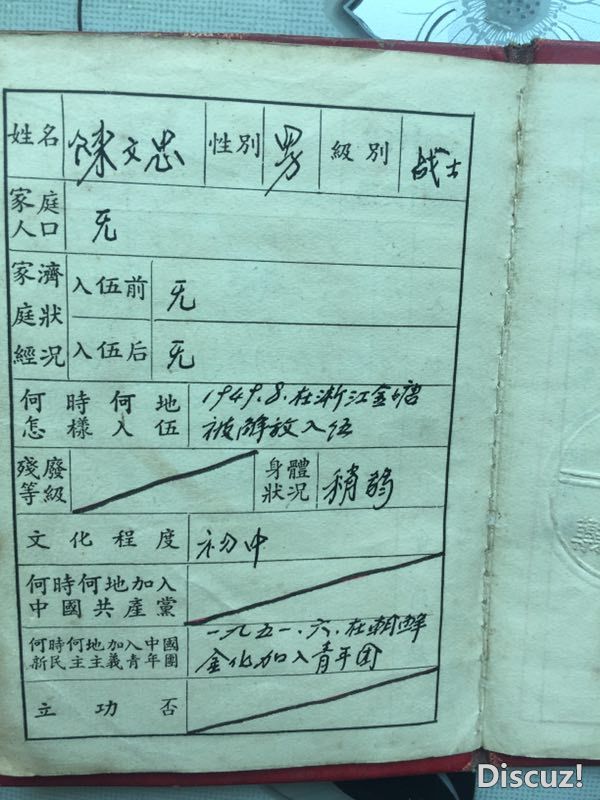 姓名 陳文忠 性别 男 級别 战士
家庭
人口 无
家濟
庭狀
經况
入伍前 无
入伍后 无
何時何地
怎樣入伍
1949.8.在浙江金塘
被解放入伍
殘廢
等級
身體
狀况
稍弱
文化程度 初中
何時何地加入
中國共產黨
何時何地加入中國
新民主主義青年團
一九五一.六.在朝鲜
金化加入青年团
立功否
Discuz!